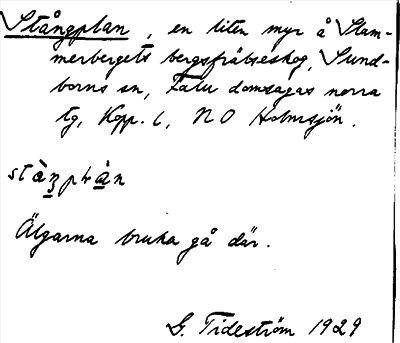 Stångplan, en liten myr å Stam-
merbergets bergsfrälseskog, Sund-
borns sn, Falu domsagas norra
tg, Kopp. l, NO Holmsjön.
Älgarna bruka gå där.
G. Tideström 1929